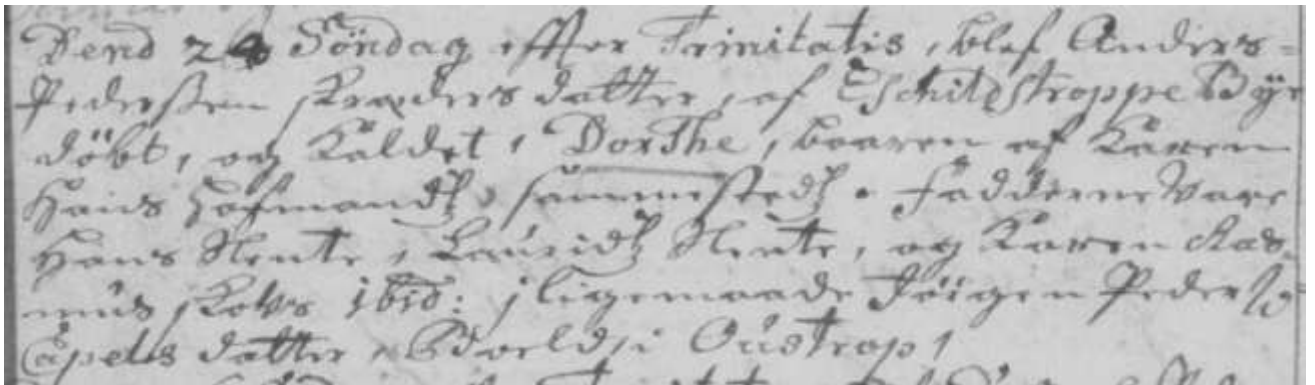 Dend 24 Söndag effter Trinitatis, blef Anders
Pedersßen skræders datter, af Eschildstroppe Byr
döbt, og kaldet, Dorthe, baaren af Karen
Hans Hofmands, sammesteds. Fadderne vare
Hans Stente, Lauridz Stente, og Karen Ras
mus skovs ibid: iligemaade Jörgen Peders
Capels datter, Bodveld, i Oustrop,